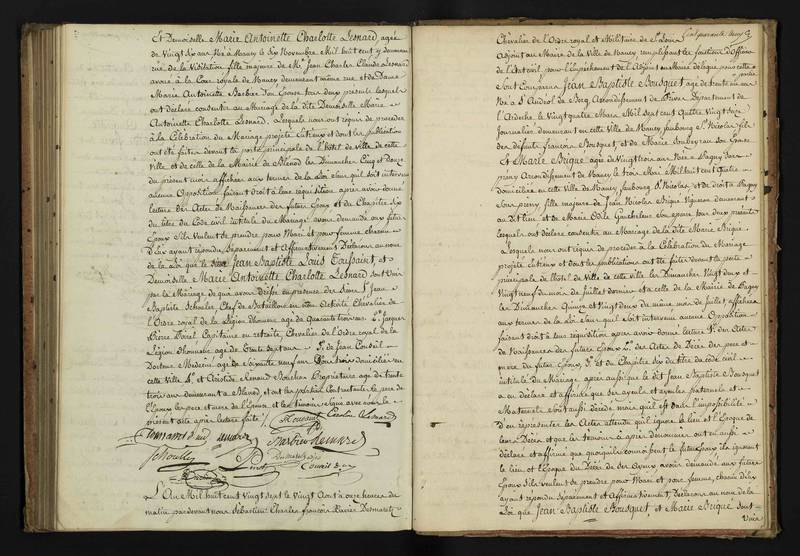 Et Demoiselle Marie Antoinette Charlotte Lesnard, agée
de Vingt six ans Née à Nancy le Six Novembre Mil huit cent
rue de la Visitation fille majeure de Mr Jean Charles Claude Lesnard
avoué à la Cour royale de Nancy demeurant même rue et de Dame
Marie Antoinette Barbier Son Epouse tous deux présents lesquels
ont déclaré consentir au Mariage de la dite Demoiselle Marie
Antoinette Charlotte Lesnard. Lesquels nous ont requis de procéder
à la Célébration du Mariage projeté entr'eux et dont les publications
ont été faites devant la porte principale de l'hôtel de ville de cette
ville, et de celle de la Mairie de Blénod les Dimanches Cinq et Douze
du présent mois affiches aux termes de la Loi sans qu'il soit intervenu
aucune Opposition faisant droit à leur réquisition, après avoir donné
lecture des Actes de Naissance des futurs Epoux et du Chapitre Six
du titre du Code civil intitulé du Mariage avons demandé aux futurs
Epoux s'ils veulent se prendre pour Mari et pour femme, chacun
d'eux ayant répondu Séparément et Affirmativement Déclarons au nom
de la Loi que le Jean Baptiste Louis Toussaint, et
Demoiselle Marie Antoinette Charlotte Lesnard sont Unis
par le Mariage de quoi avons dressé en présence des Sieurs 1° Jean
Baptiste Schouller, Chef de Bataillon en Activité Chevalier de
l'Ordre royal de la Légion d'honneur agé de Quarante trois ans 2° Jacques
Pierre Pinel Capitaine en retraite, Chevalier de l'Ordre royal de la
Légion d'honneur agé de trente sept ans 3° de Jean
Docteur Médecin agé de Soixante neuf ans Tous trois domiciliés en
cette Ville 4° et Aristide Renaud Propriétaire agé de trente
trois ans demeurant à Blénod, et ont les parties Contractantes le père de
l'Epoux les père et mère de l'Epouse et les témoins signé avec nous le
présent acte après lecture faite /.
Toussaint Caroline Lesnard
Toussaint
Barbier Lesnard
Schouller
Pinel
Desmaretz
L'An Mil huit cent Vingt sept le Vingt Août à onze heures du
matin pardevant nous Sébastien Charles François Xavier Desmaretz
Cent quarante
Chevalier de l'Ordre royal et Militaire de St Louis
Adjoint au Maire de la Ville de Nancy remplissant les fonctions d'Officier
de l'Etat civil pour l'Empêchement de l'Adjoint au Maire délégué pour cette
Sont Comparus Jean Baptiste Bousquet agé de trente ans
Né à St Andéol de Berg, Arrondissement de Privas Département de
l'Ardèche le Vingt quatre Mars Mil Sept cent Quatre Vingt Seize
Journalier, demeurant en cette Ville de Nancy, faubourg St Nicolas fils
des défunts François Bousquet, et de Marie son Epouse
Et Marie Brique agée de Vingt trois ans Née à Pagny sur
Arrondissement de Nancy le trois Mai Mil huit cent Quatre
domiciliée en cette Ville de Nancy, faubourg St Nicolas, et de droit à Pagny
fille majeure de Jean Nicolas Brique Vigneron demeurant
au dit lieu et de Marie son épouse tous deux présents
lesquels ont déclaré consentir au Mariage de la dite Marie Brique.
Lesquels nous ont requis de procéder à la Célébration du Mariage
projeté entr'eux et dont les publications ont été faites devant la porte
principale de l'hôtel de Ville de cette ville les Dimanches Vingt deux et
Vingt neuf du mois de Juillet dernier et à celle de la Mairie de Pagny
les Dimanches Quinze et Vingt deux du même mois de Juillet, affichées
aux termes de la Loi sans qu'il soit intervenu aucune Opposition
faisant droit à leur réquisition après avoir donné lecture 1° des Actes
de Naissance des futurs Epoux, 2° des Actes de Décès des père et
mère du futur Epoux, 3° et du Chapitre Six du titre du code civil
intitulé du Mariage, après aussi que le dit Jean Baptiste Bousquet
a eu déclaré et affirmé que ses ayeuls et ayeules paternels et
Maternels sont aussi décédés mais qu'il est dans l'impossibilité
d'en représenter les Actes attendu qu'il ignore le lieu et l'Epoque de
leur Décès et que les témoins ci après dénommés ont eu aussi
déclaré et affirmé que quoiqu'ils connoissent le futur Epoux ils ignorent
le lieu et l'Epoque du Décès de ses Ayeux, avons demandé aux futurs
Epoux s'ils veulent se prendre pour Mari et pour femme, chacun d'eux
ayant répondu Séparément et Affirmativement, Déclarons au nom de la
Loi que Jean Baptiste Bousquet, et Marie Brique sont
Unis